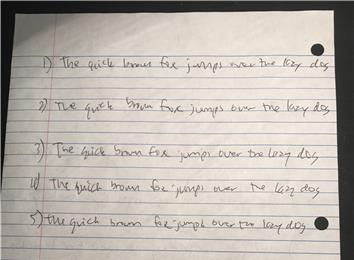 1) The quick brown fox jumps over the lazy dog
2) The quick brown fox jumps over the lazy dog
3) The quick brown fox jumps over the lazy dog
4) The quick brown fox jumps over the lazy dog
5) the quick brown fox jumps over the lazy dog